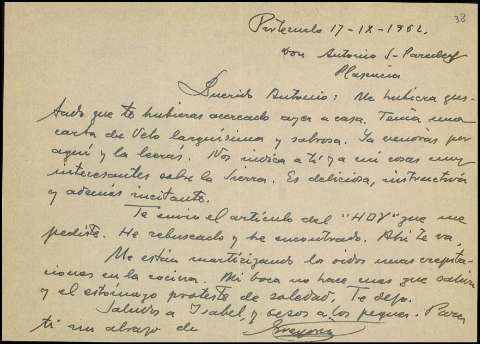 38
Portezuelo 17-IX-1962.
Don Antonio S-Paredes
Plasencia
Querido Antonio: Me hubiera gus-
tado que te hubieras acercado ayer a casa. Tenía una
carta de Velo larguísima y sabrosa. Ya vendrás por
aquí y la leerás. Nos indica a tí y a mi cosas muy
interesantes sobre la Sierra. Es deliciosa, instructiva
y además incitante.
Te envio el artículo del "HOY" que me
pediste. He rebuscado y he encontrado. Ahí te va.
Me están martirizando los oidos unas crepita-
ciones en la cocina. Mi boca no hace mas que salivar
y el estómago protesta de soledad. Te dejo.
Saludos a Isabel, y besos a los peques. Para
ti un abrazo de